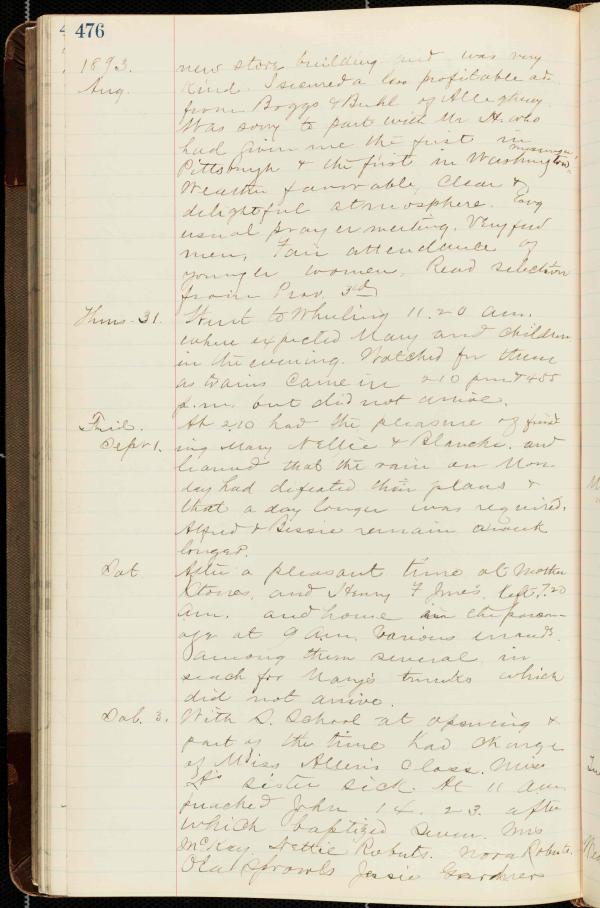 476
1893. new store building and was very
Aug. kind. I secured a less profitable ad.
from Boggs & Buhl of Allegheny.
Was sorry to part with Mr H. who
had given me the first in
Pittsburgh & the first in Washington
Weather favorable, clear &
delightful atmosphere. Eve'g
usual prayer meeting. Very few
men, Fair attendance of
younger women. Read selection
from Prov. 3rd
Thurs 31. Went to Wheeling 11.20 am.
where expected Mary and children
in the evening. Watched for them
as trains came in 2.10 pm & 4.55
p.m. but did not arrive.
Frid. At 2.10 had the pleasure of find
Sept 1. ing Mary Nellie & Blanche. and
learned that the rain on Mon
day had defeated their plans &
that a day longer was required.
Alfred & Bessie remain a week
longer.
Sat After a pleasant time at Mother
Stones, and Henry F Jones. left 7.20
am. and home in the parson-
age at 9 am. Various errands
among them several in
seach for Mary's trunks which
did not arrive.
Sab. 3. With S. School at opening &
part of the time had charge
of Miss Allen's Class. Miss
A's sister sick. At 11 am
preached John 14. 23. after
which baptized seven. Mrs
McKay. Nettie Roberts. Nora Roberts.
Ola Sprowls Jessie Gardner